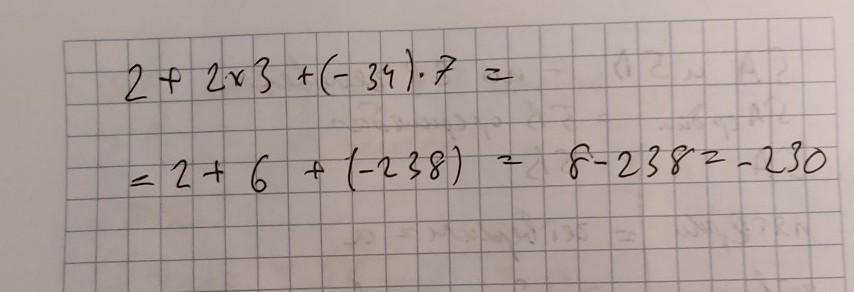 2 + 2×3 + (-34)·7 =
= 2 + 6 + (-238) = 8-238 = -230